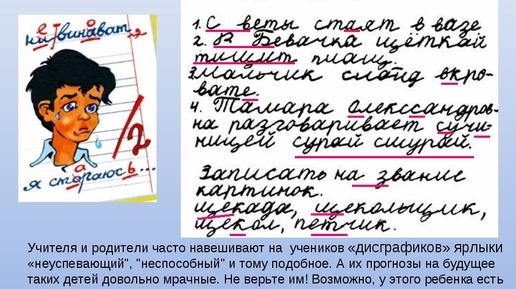 ни винават
я стораюсь...
2
1. С веты стаят в вазе
2. В Девачка щёткай
тишит плащ.
3. мальчик слойд вкро-
вате.
4. Тамара Олекссандров-
на разговаривает сучи-
ницей сурай шурай.
Записать на звание
картинок.
щекада, щекольщик,
щекол, петчик.
Учителя и родители часто навешивают на учеников «дисграфиков» ярлыки
«неуспевающий", "неспособный" и тому подобное. А их прогнозы на будущее
таких детей довольно мрачные. Не верьте им! Возможно, у этого ребенка есть